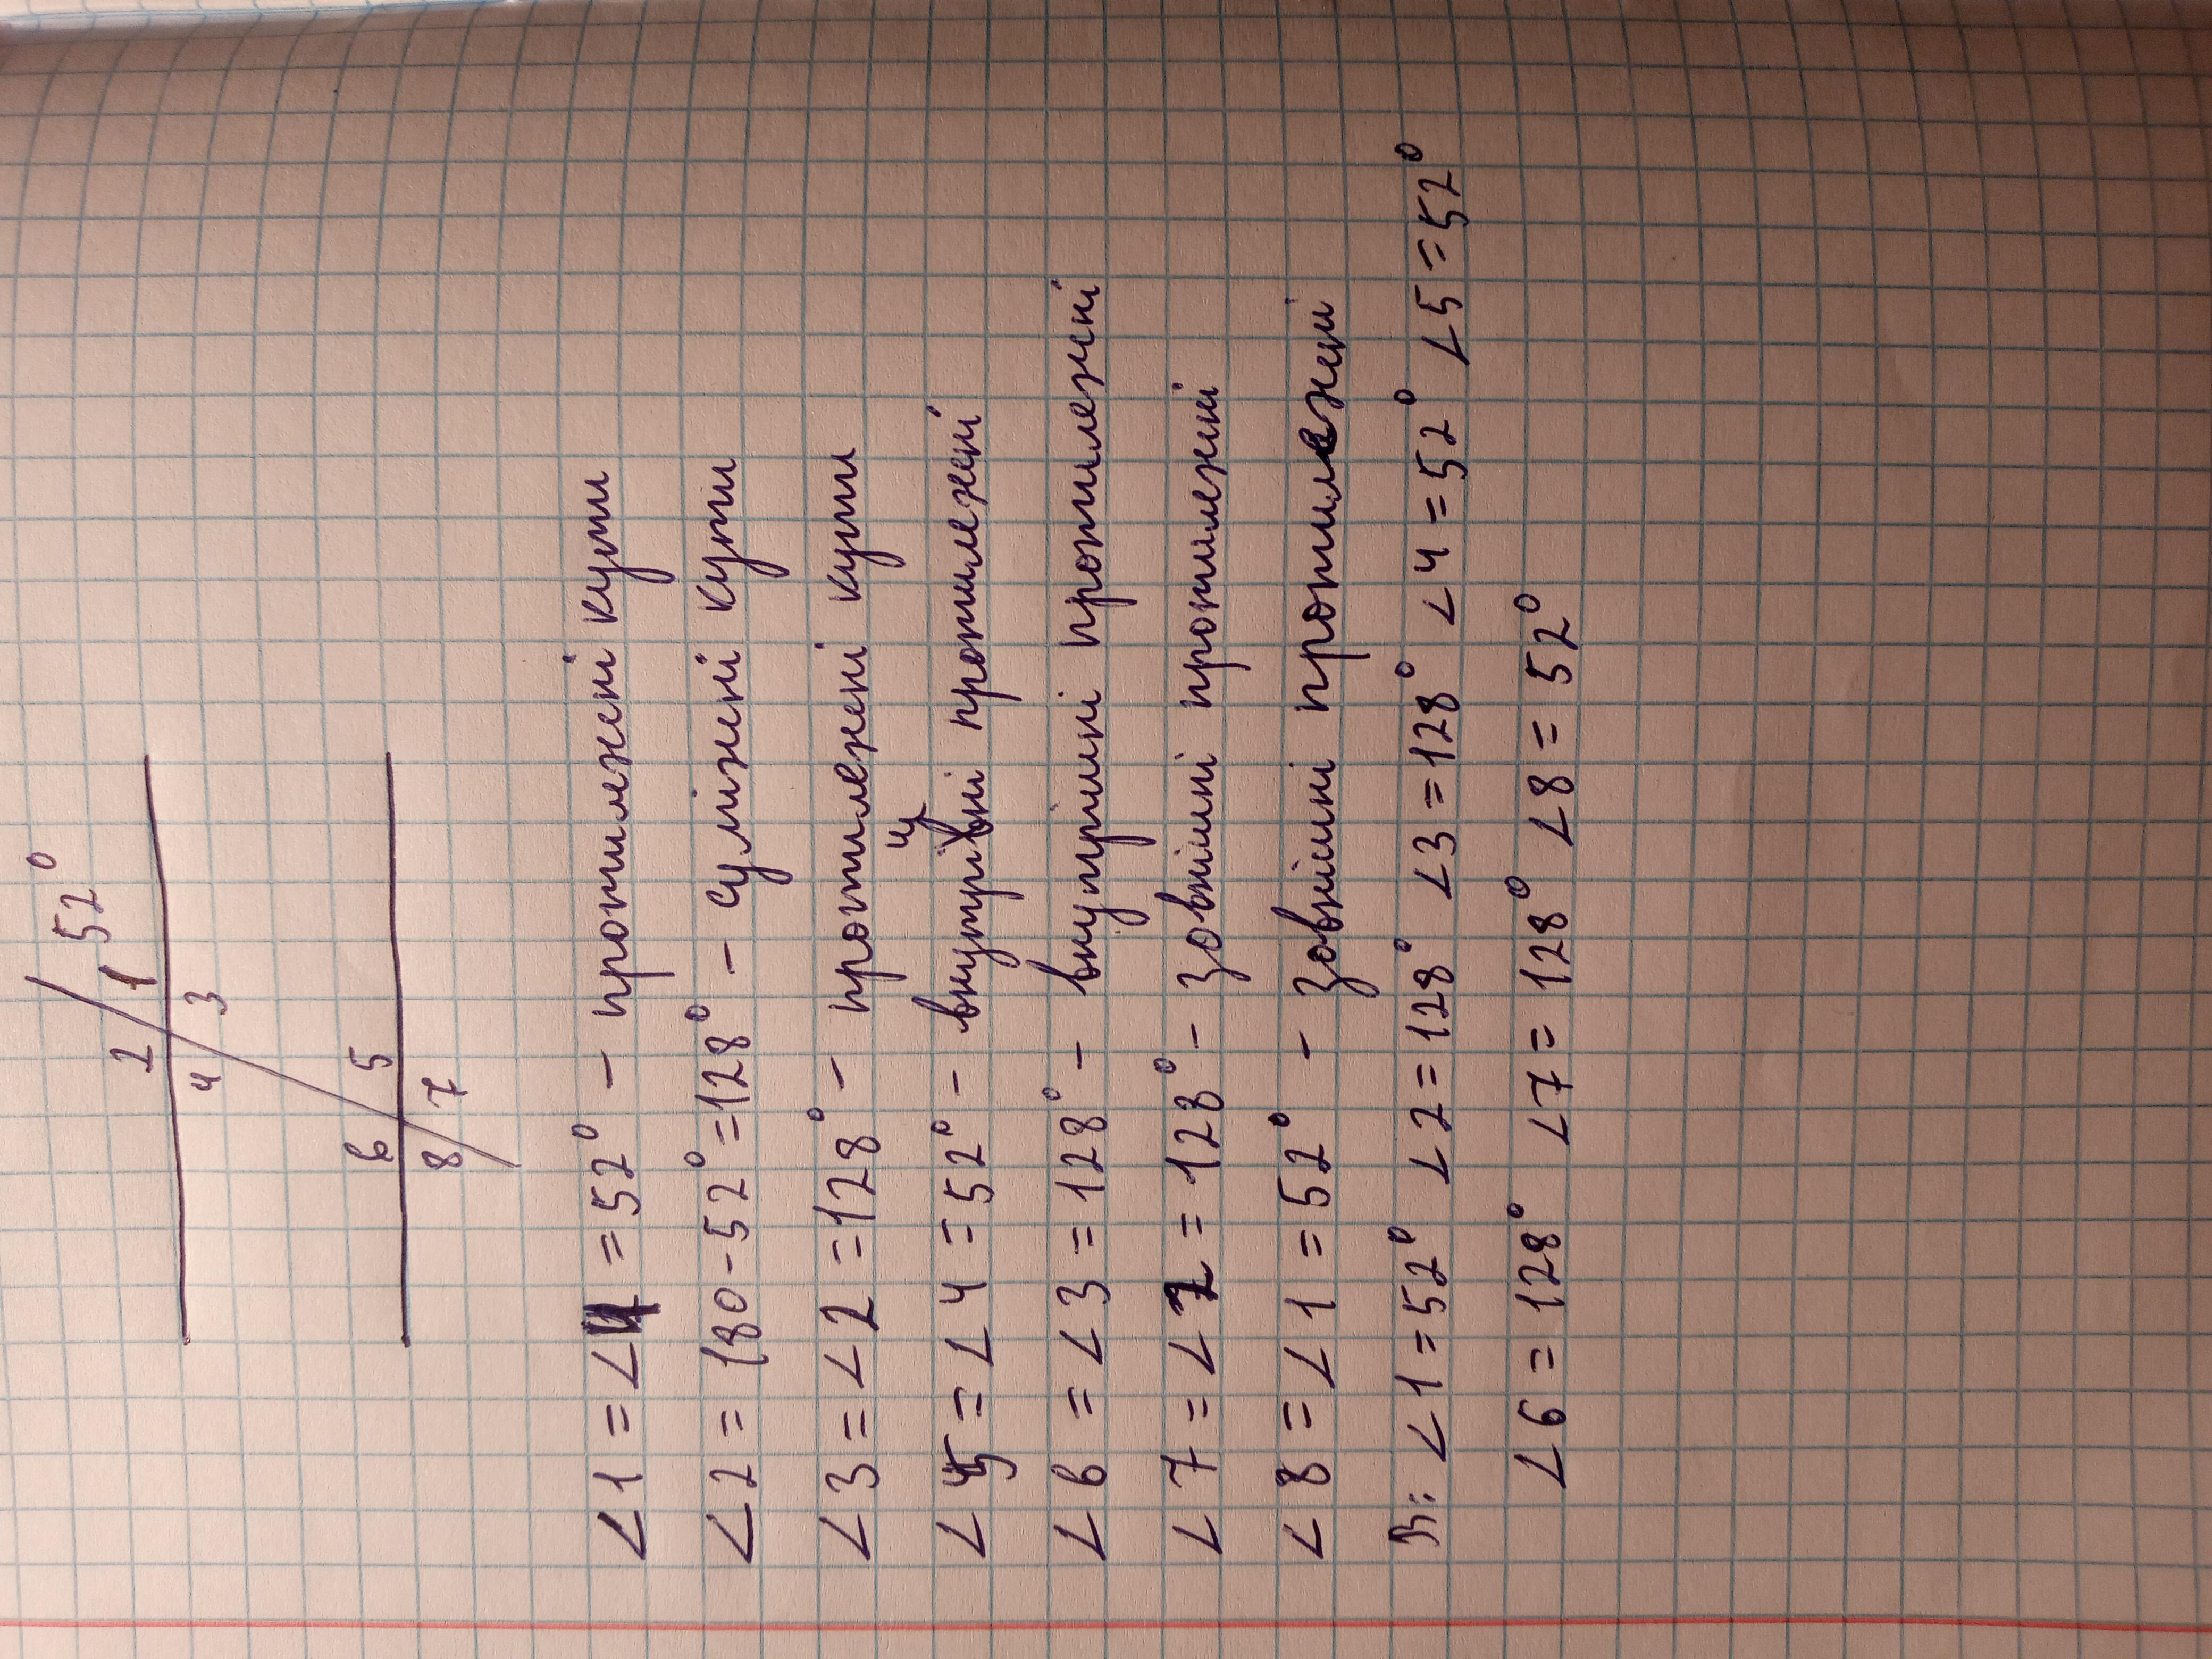 2 1 52°
4 3
6 5
8 7
∠1 = ∠4 = 52° – протилежні кути
∠2 = 180 - 52° = 128° – суміжні кути
∠3 = ∠2 = 128° – протилежні кути
∠5 = ∠4 = 52° – внутрішні протилежні
∠6 = ∠3 = 128° – внутрішні протилежні
∠7 = ∠2 = 128° – зовнішні протилежні
∠8 = ∠1 = 52° – зовнішні протилежні
В: ∠1 = 52° ∠2 = 128° ∠3 = 128° ∠4 = 52° ∠5 = 52°
∠6 = 128° ∠7 = 128° ∠8 = 52°